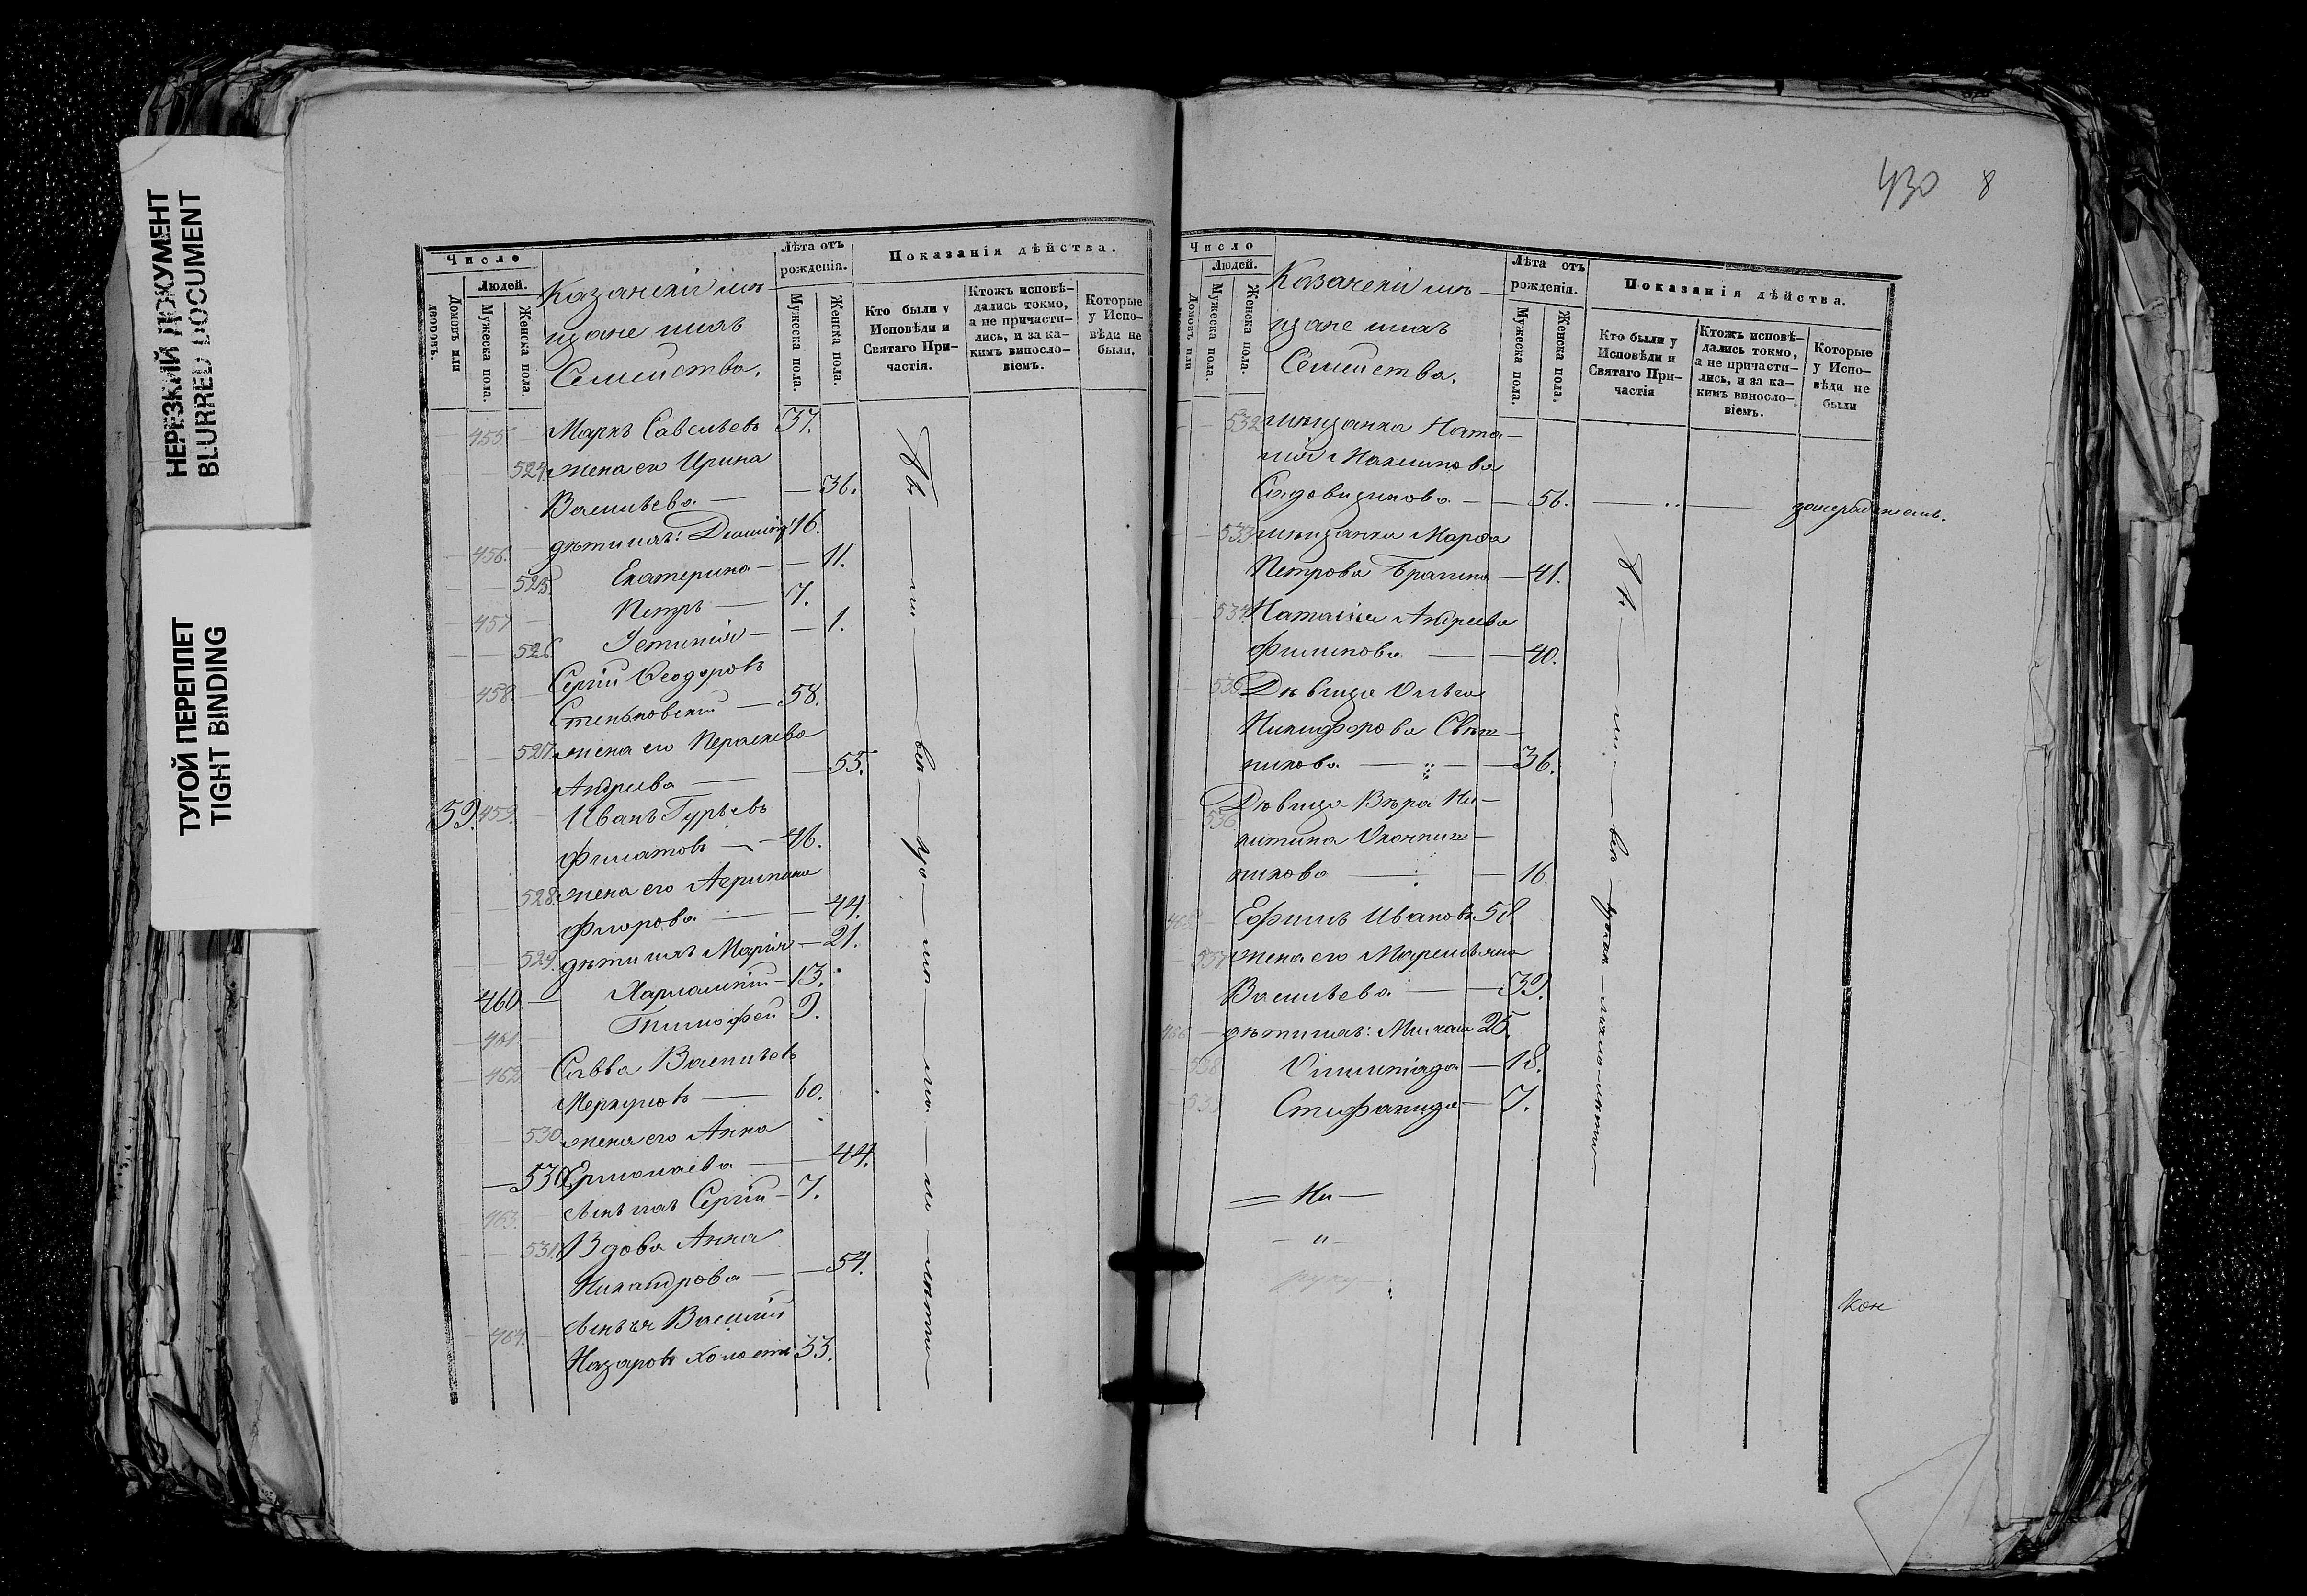 НЕРЕЗКИЙ ДОКУМЕНТ
BLURRED DOCUMENT
ТУГОЙ ПЕРЕПЛЕТ
TIGHT BINDING
Число
Людей.
Домовъ или дворовъ.
Мужеска пола.
Женска пола.
Казанскіи мѣ-
щане ихъ
Семейства.
Лѣта отъ рожденія.
Мужеска пола.
Женска пола.
Показанія дѣйства.
Кто были у Исповѣди и Святаго Причастія.
Ктожъ исповѣ-
дались токмо,
а не причасти-
лись, и за ка-
кимъ винословіемъ.
Которые у Испо-
вѣди не были.
455. Маркъ Савельевъ 37.
524. жена его Ирина
Васильева — 36.
456. дѣти ихъ: 16.
525. Екатерина — 11.
457 Петръ — 7.
526. — 1.
458. Сергій Ѳеодоровъ
58.
527. жена его Параскева
Андреева — 55.
59. 459. Иванъ Гурьевъ
Филатовъ — 46.
528. жена его Агрипина
44.
529. дѣти ихъ Марія — 21.
460 — Харлампій — 13.
461 Тимофей 9.
462 Савва Васильевъ
Меркуловъ — 60.
530 жена его Анна
— 530 Ермолаева — 44.
463. Сергій — 7.
531. Вдова Анна
Никандрова — 54.
464. Василій
Назаровъ холостъ 33.
430 8
Число
Людей.
Домовъ или
Мужеска пола.
Женска пола.
Казанскіи мѣ-
щане ихъ
Семейства.
Лѣта отъ рожденія.
Мужеска пола.
Женска пола.
Показанія дѣйства.
Кто были у Исповѣди и Святаго При-
частія
Ктожъ исповѣ-
дались токмо,
а не причасти-
лись, и за ка-
кимъ виносло-
віемъ.
Которые у Испо-
вѣди не были
532 мѣщанка Ната-
лія Максимова
56.
533 мѣщанка Марѳа
Петрова — 41.
534 Наталія Андреева
Филипова — 40.
535 Дѣвица Ольга
Никифорова Свѣш-
никова — 36.
536 Дѣвица Вѣра Ни-
китина Оконниш-
никова — 16
465 Ефимъ Ивановъ 58
537 жена его
Васильева — 39.
466 дѣти ихъ: Михаилъ 25.
538 Олимпіада — 18.
539 Стефанида — 7.